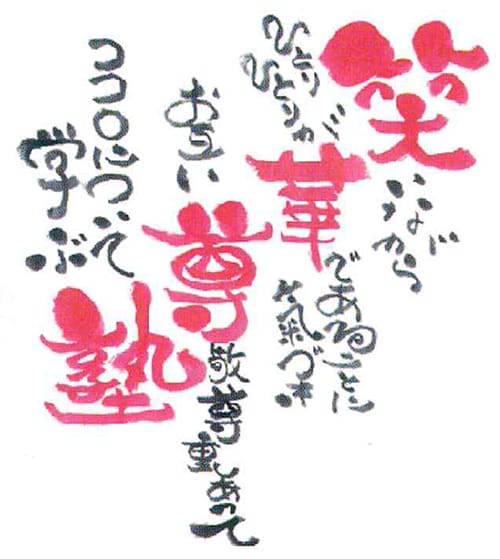 笑いながら
ひとつひとつが
華であることに
氣づき
お互い
尊敬尊重しあって
ココロについて
学ぶ
塾